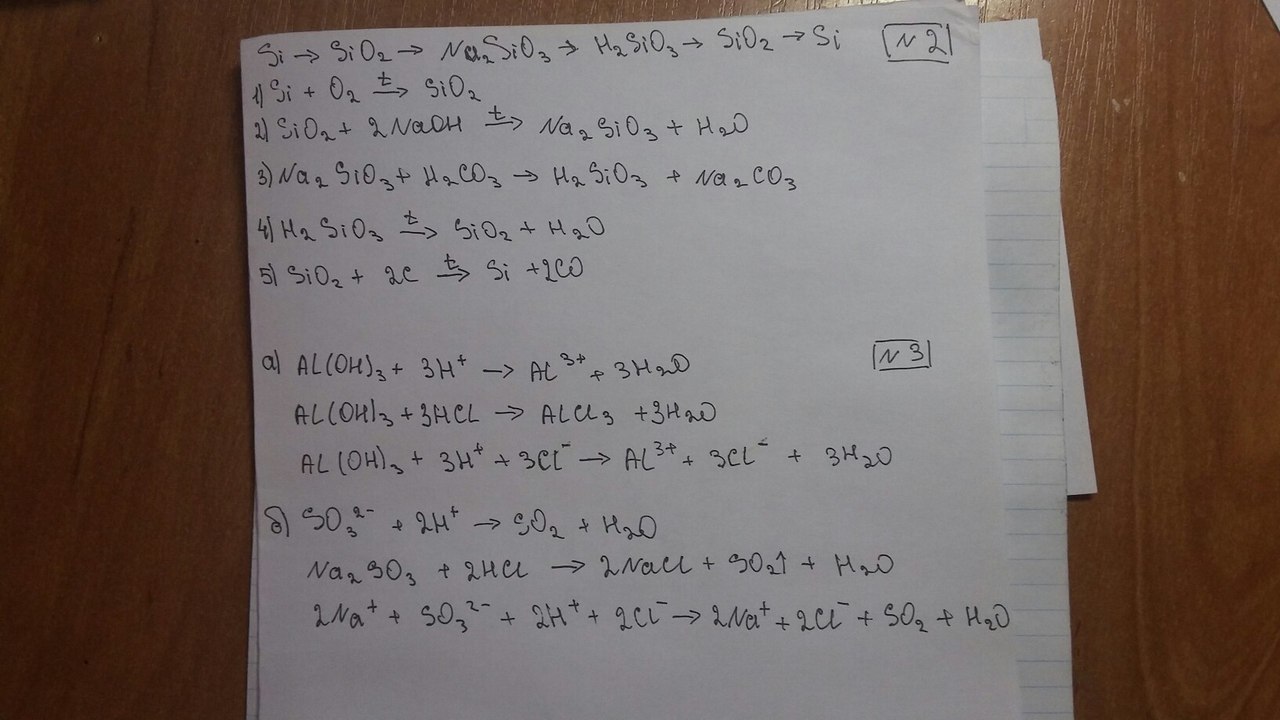 Si → SiO₂ → Na₂SiO₃ → H₂SiO₃ → SiO₂ → Si
N 2
1) Si + O₂ →ᵗ SiO₂
2) SiO₂ + 2NaOH →ᵗ Na₂SiO₃ + H₂O
3) Na₂SiO₃ + H₂CO₃ → H₂SiO₃ + Na₂CO₃
4) H₂SiO₃ →ᵗ SiO₂ + H₂O
5) SiO₂ + 2C →ᵗ Si + 2CO
N 3
а) Al(OH)₃ + 3H⁺ → Al³⁺ + 3H₂O
Al(OH)₃ + 3HCl → AlCl₃ + 3H₂O
Al(OH)₃ + 3H⁺ + 3Cl⁻ → Al³⁺ + 3Cl⁻ + 3H₂O
б) SO₃²⁻ + 2H⁺ → SO₂ + H₂O
Na₂SO₃ + 2HCl → 2NaCl + SO₂↑ + H₂O
2Na⁺ + SO₃²⁻ + 2H⁺ + 2Cl⁻ → 2Na⁺ + 2Cl⁻ + SO₂ + H₂O